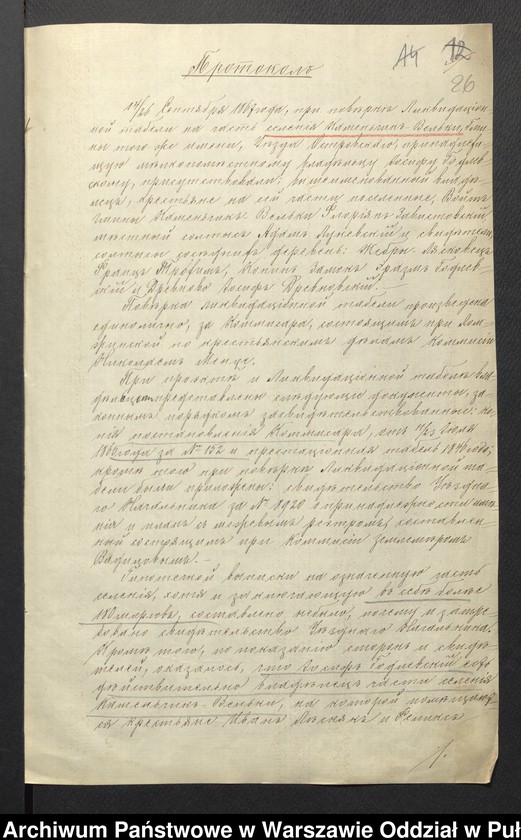 Протоколъ
14 12
26
14/26 Сентября 1867 года, при повѣркѣ Ликвидаціон-
ной табели на часть селенія Каменьчикъ-Вельки, Гми-
ны того же имени, Уѣзда Островскаго, принадлежа-
щую мѣлкопомѣстному владѣльцу Іосифу Годлев-
скому, присутствовали: вышепоименованный владѣ-
лецъ, крестьяне на сей части поселенные, Войтъ
Гмины Каменьчикъ Вельки Флоріянъ Завистовскій
мѣстный солтысъ Адамъ и свидѣтели
солтысы сосѣднихъ деревень: Жебры-Лясковецъ
Францъ Трофимъ, Замокъ Эразмъ
и Древново Іосифъ Древновскій. —
Повѣрка ликвидаціонной табели произведена
единолично, за Коммисара, состоящимъ при Лом-
жинской по крестьянскимъ дѣламъ Коммисіи
Николаемъ
При проектѣ и Ликвидаціонной табели вла-
дѣльцемъ представлены слѣдующіе документы, за-
коннымъ порядкомъ засвидѣтельствованные: ко-
пія постановленія Коммисара, отъ 11/23 Іюля
186 года за № 152 и престаціонная табель 1846 года;
кромѣ того при повѣркѣ Ликвидаціонной та-
бели были приложены: свидѣтельство Уѣздна-
го Начальника за № 8920 о принадлежности имѣ-
нія и планъ съ мѣровымъ реэстромъ, составлен-
ный состоящимъ при Коммисіи землемѣромъ
—
Гипотечной выписки на означенную часть
селенія, хотя и заключающую въ себѣ болѣе
180 морговъ, составлено небыло, почему и затре-
бовано свидѣтельство Уѣзднаго Начальника.
Кромѣ того, по показанію сторонъ и свидѣ-
телей, оказалось, что Іосифъ Годлевскій есть
дѣйствительно владѣлецъ части селенія
Каменьчикъ-Вельки, на которой помѣщают-
ся крестьяне Иванъ и
Archiwum Państwowe w Warszawie Oddział w Puł